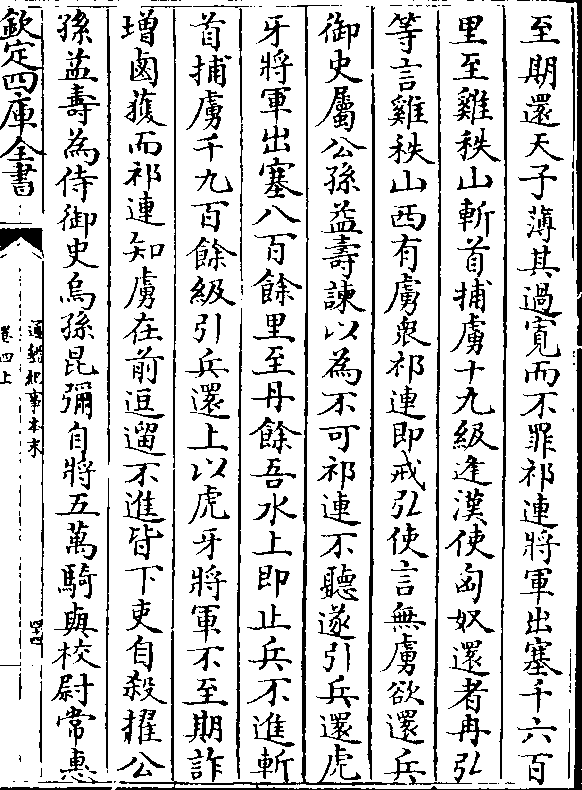 至期還天子薄其過寛而不罪祁連將軍出塞千六百
里至雞秩山斬首捕虜十九級逢漢使匈奴還者冉弘
等言雞秩山西有虜衆祁連即戒弘使言無虜欲還兵
御史屬公孫益壽諫以為不可祁連不聽遂引兵還虎
牙將軍出塞八百餘里至丹餘吾水上即止兵不進斬
首捕虜千九百餘級引兵還上以虎牙將軍不至期詐
增鹵獲而祁連知虜在前逗遛不進皆下吏自殺擢公
孫益壽為侍御史烏孫昆彌自將五萬騎與校尉常惠
欽定四庫全書
通鑑紀事本末
卷四上
四十四